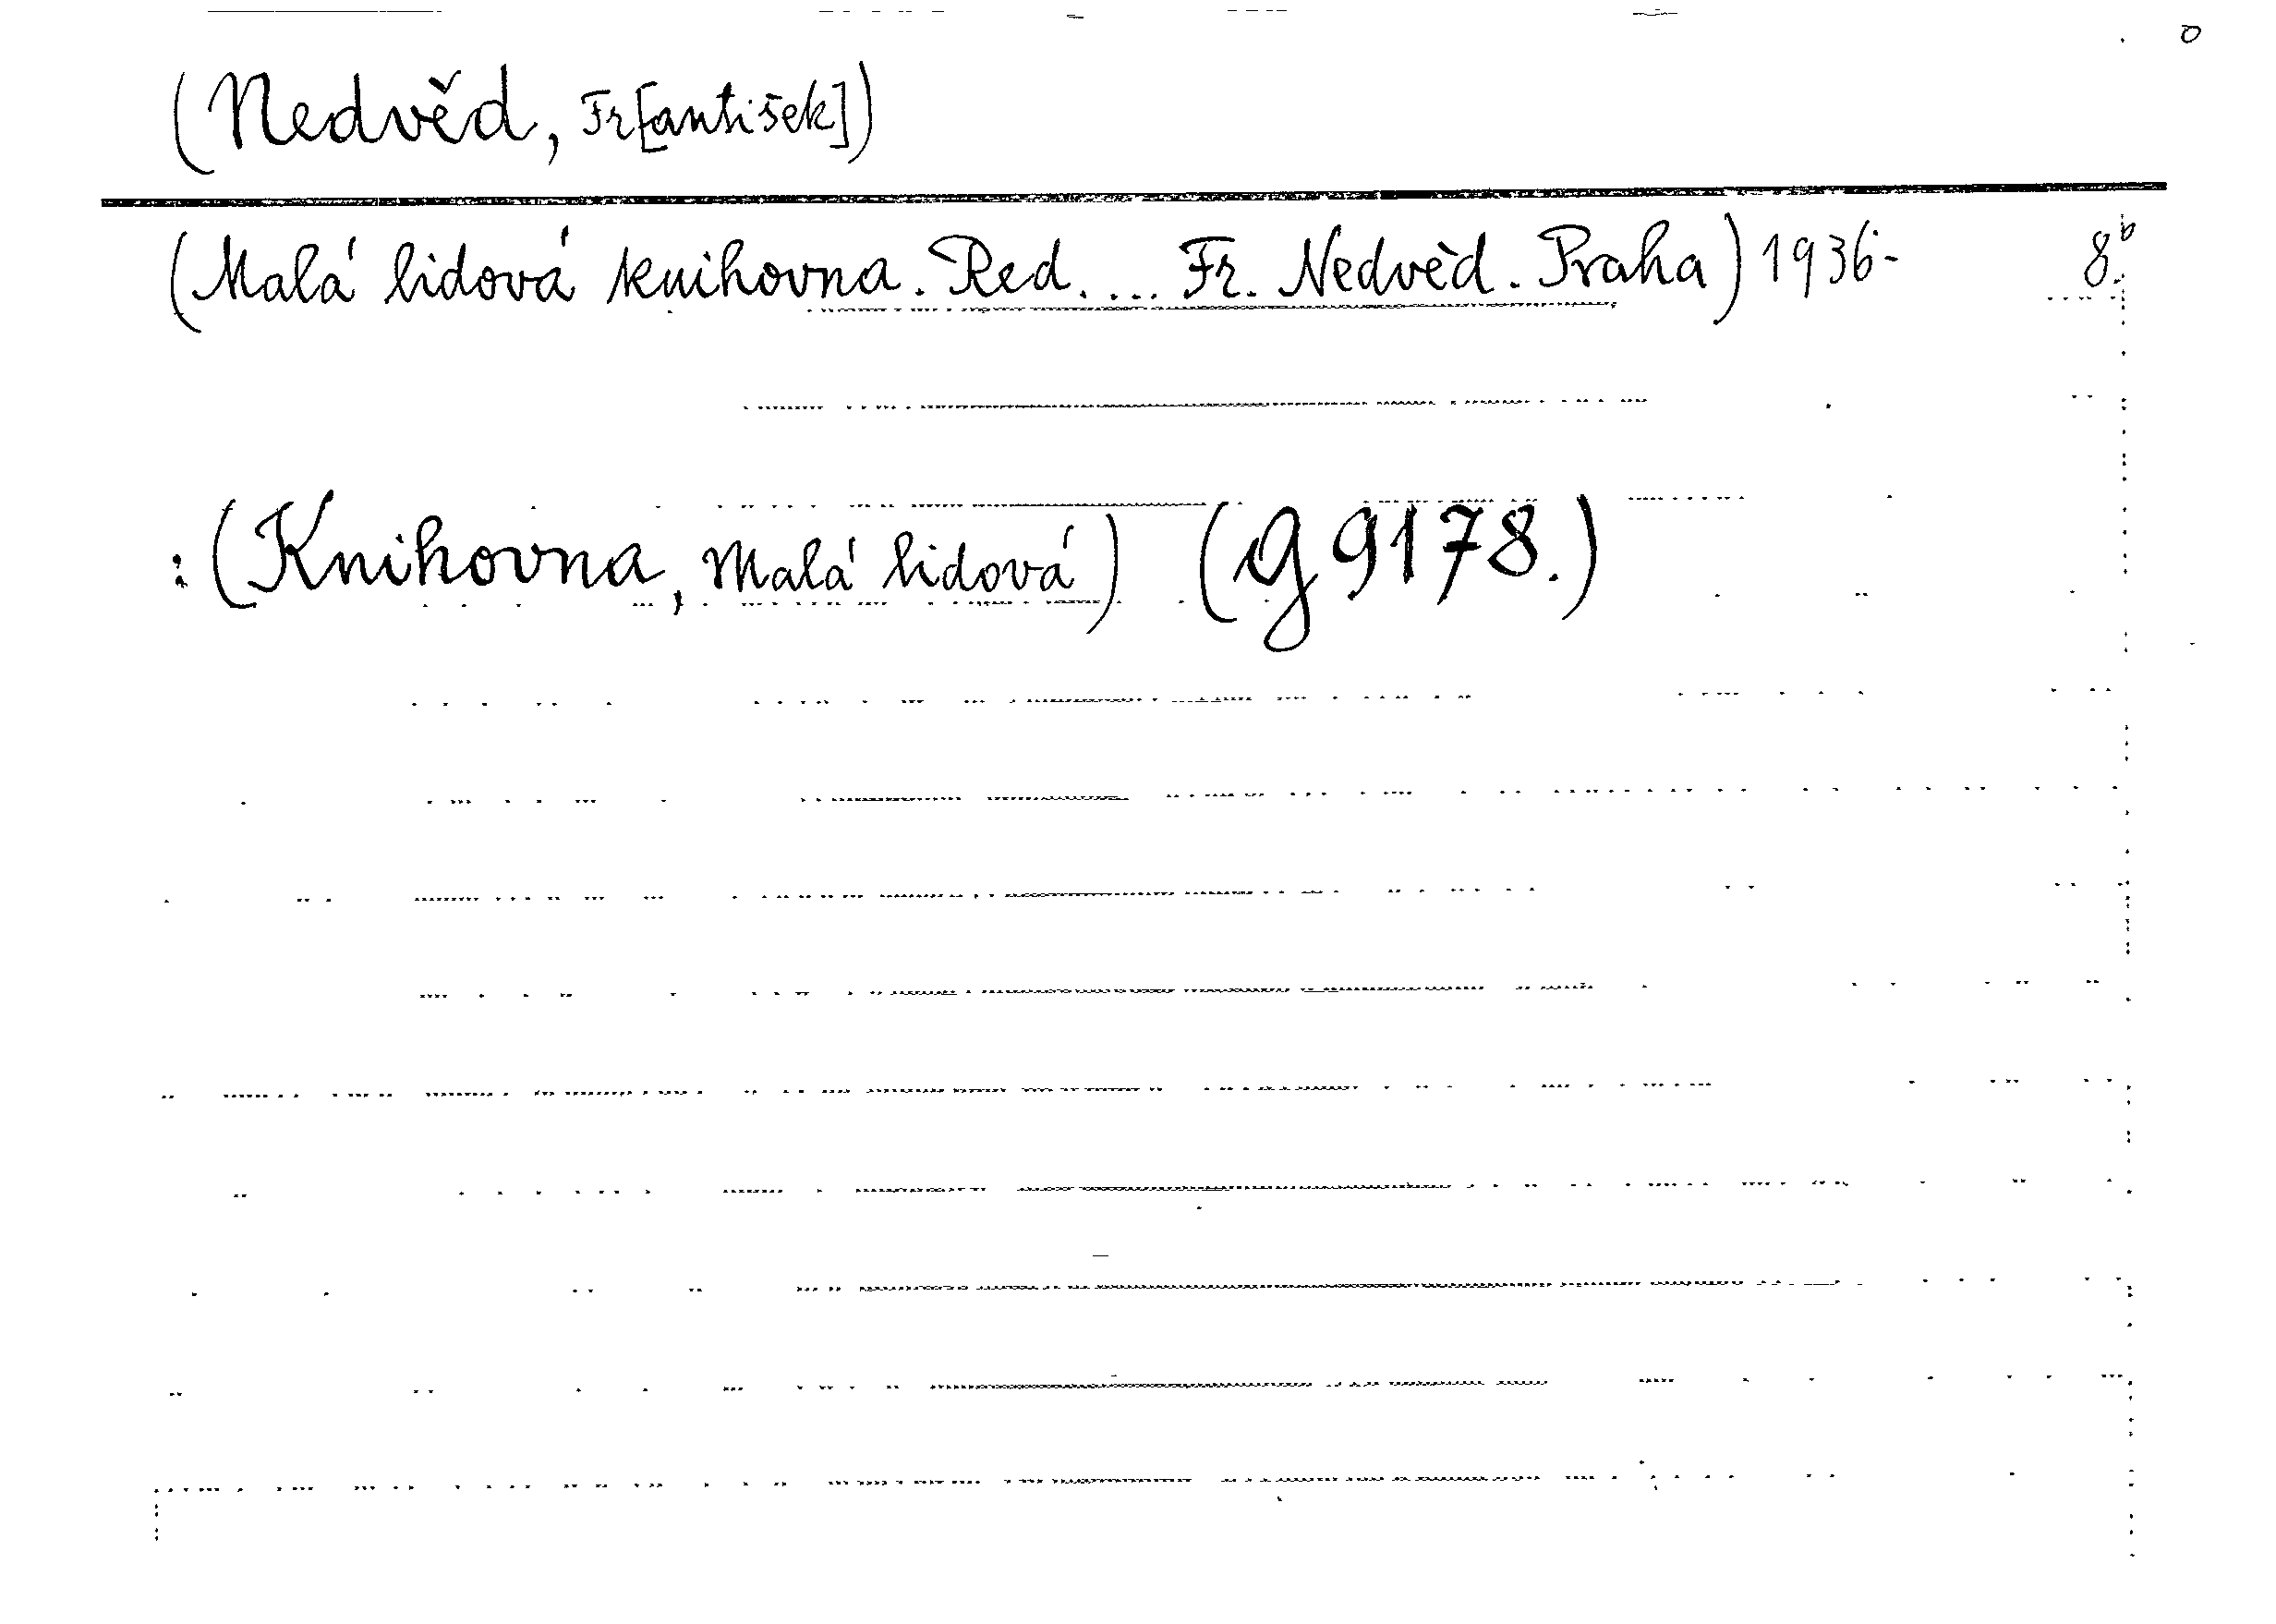 (Nedvěd, Fr[antišek])
(Malá lidová knihovna. Red. ... Fr. Nedvěd. Praha) 1936- 8º.
: (Knihovna, Malá lidová) (G 9178.)